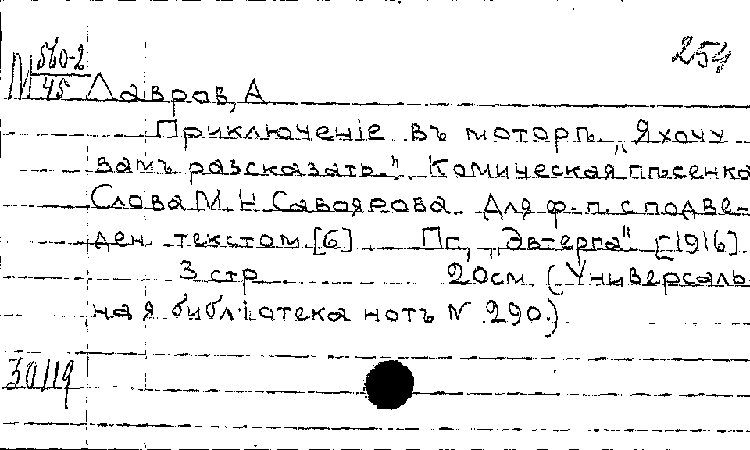 М 560-2/45
254
Лавров, А
Приключеніе въ моторѣ. „Я хочу
вамъ разсказать." Комическая пѣсенка
Слова М. Н Савоярова. Для ф.-п. с подве-
ден. текстом [6]. Пг., „Эвтерпа" [1916].
3 стр 20см. (Универсаль-
ная библіатека нотъ N 290.)
30/19